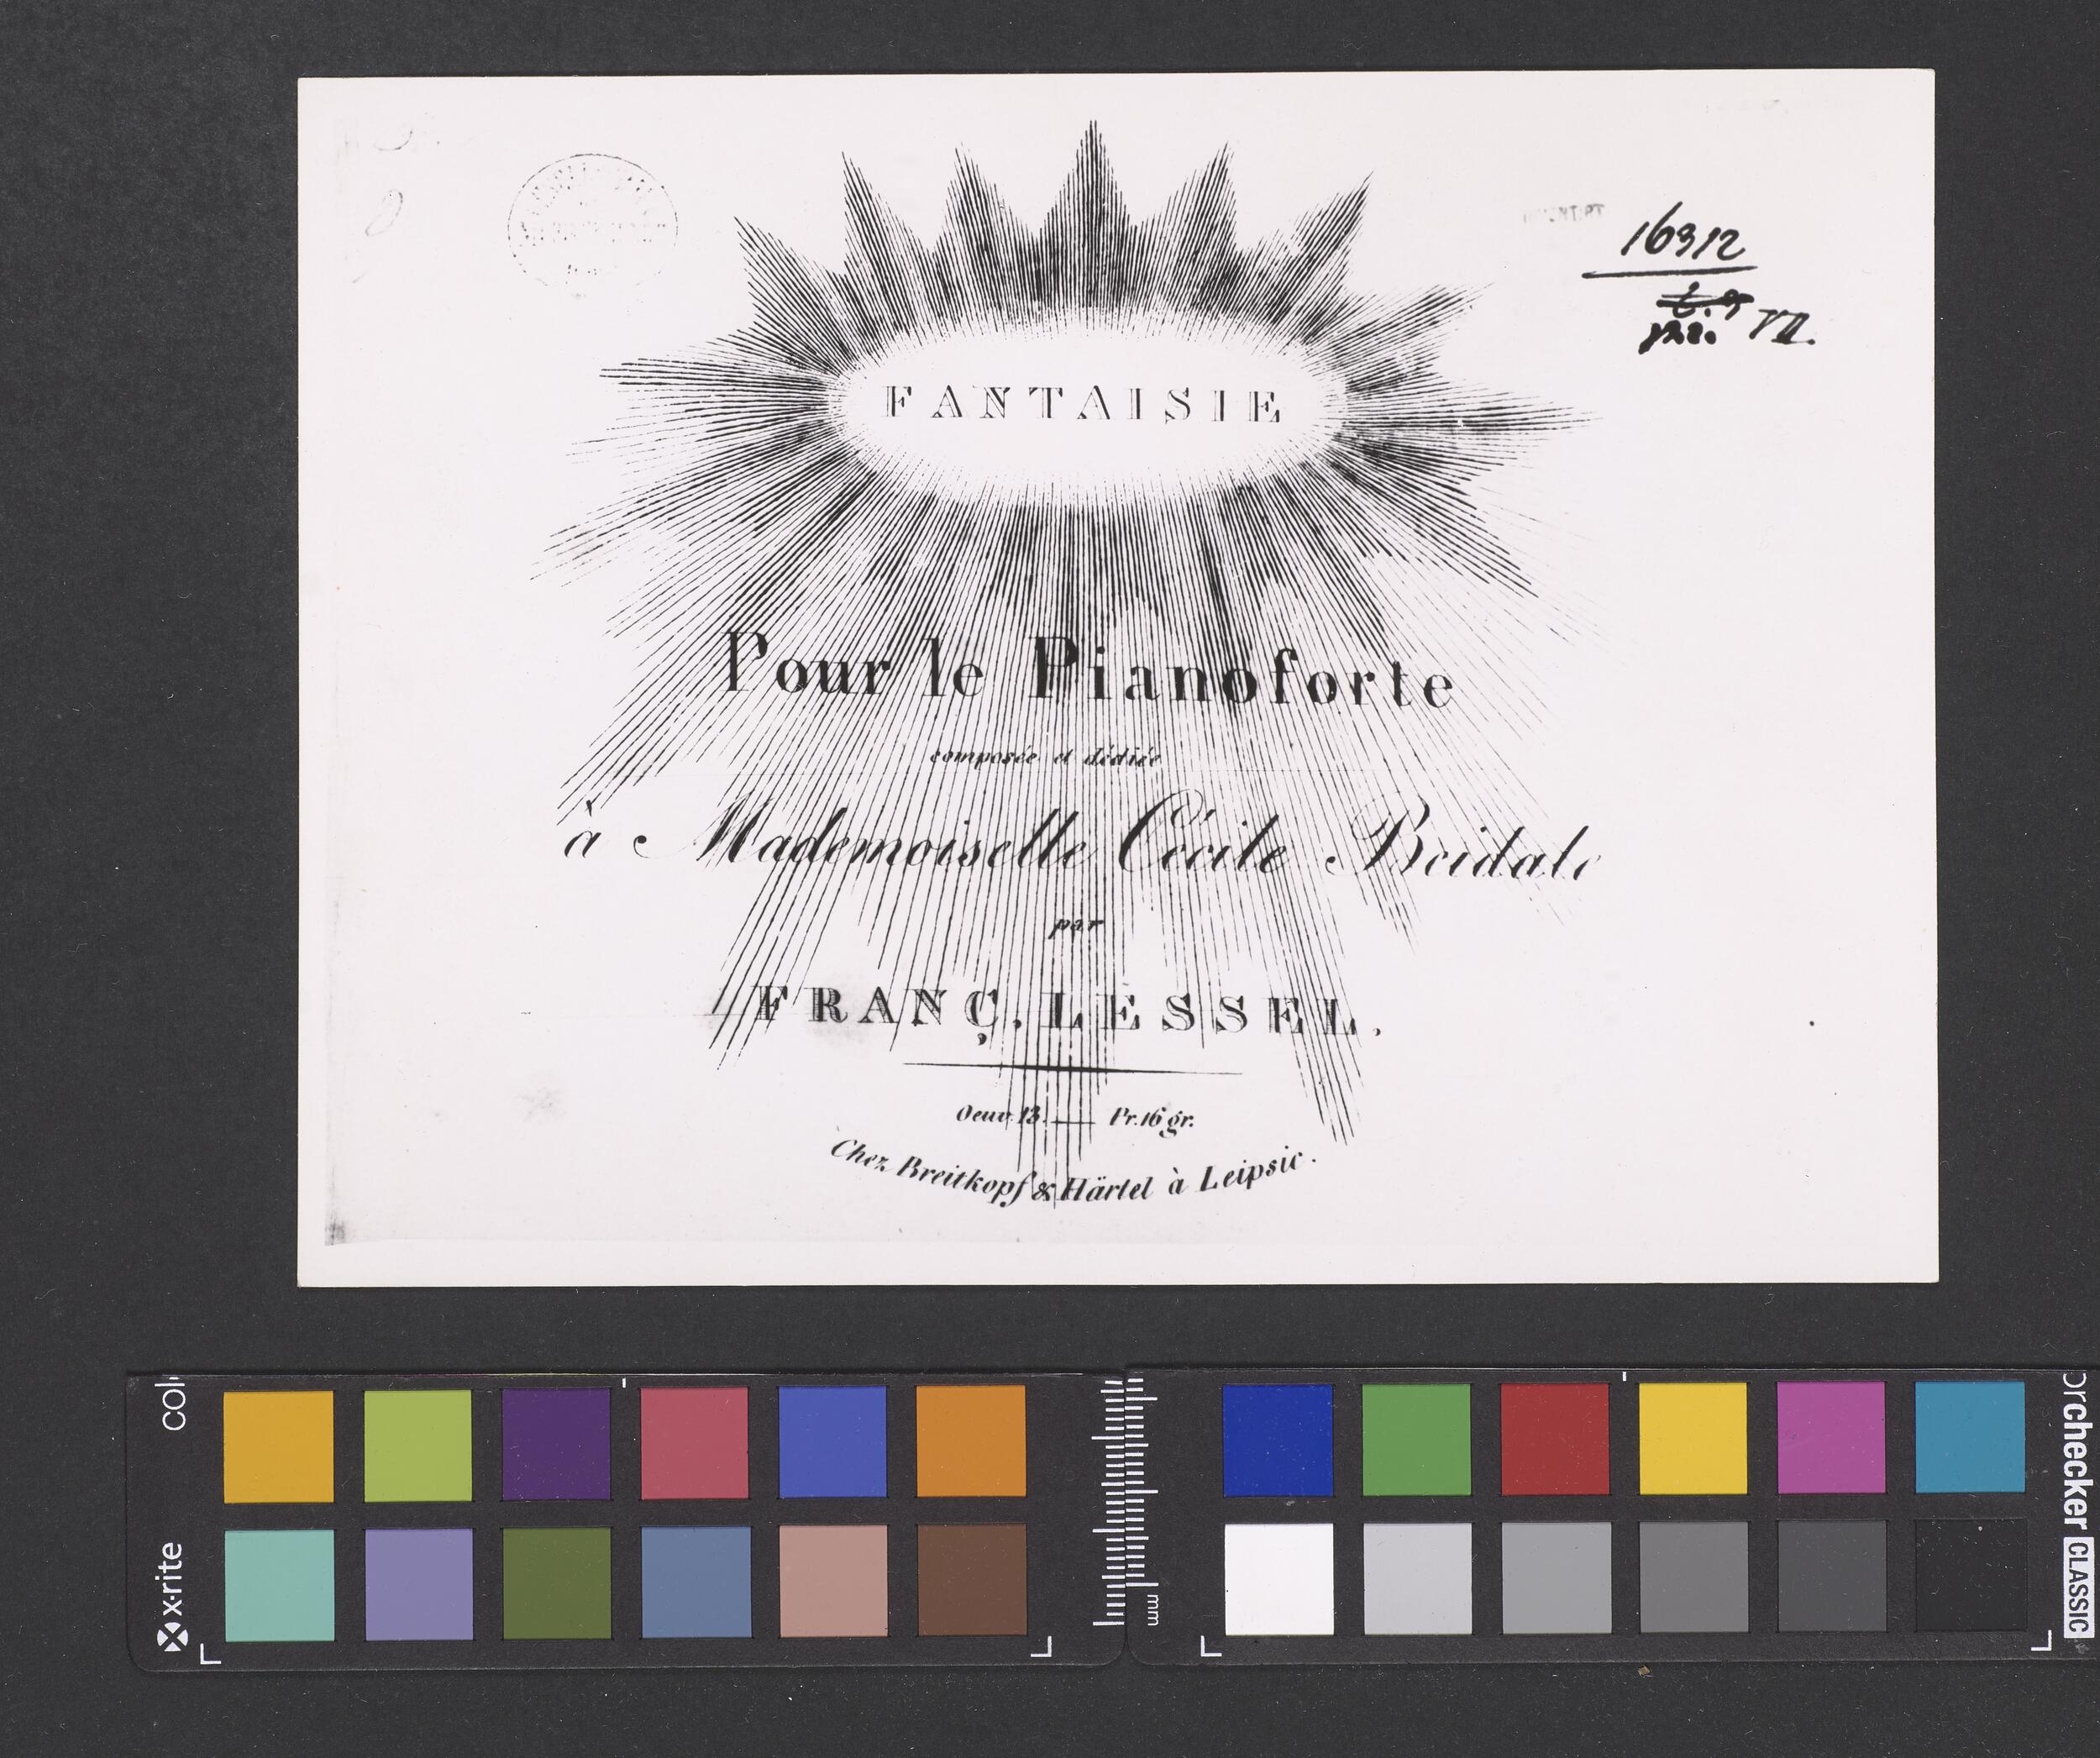 16312
VII.
FANTAISIE
Pour le Pianoforte
composée et dédiée
à Mademoiselle Cécile Beidale
par
FRANÇ. LESSEL.
Oeuv. 13. — Pr. 16 gr.
Chez Breitkopf & Härtel à Leipsic.
x-rite
col
mm
orchecker CLASSIC